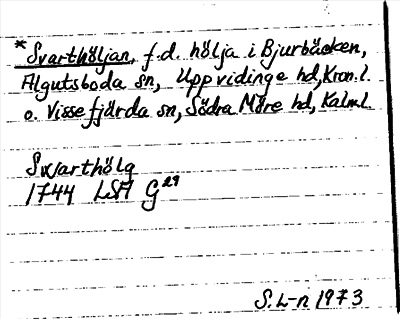 *Svarthöljan, f.d. hölja i Bjurbäcken,
Algutsboda sn, Uppvidinge hd, Kron.l.
o. Vissefjärda sn, Södra Möre hd, Kalm.l.
Swarthölg
1744 LSA G 29
S. L-n 1973